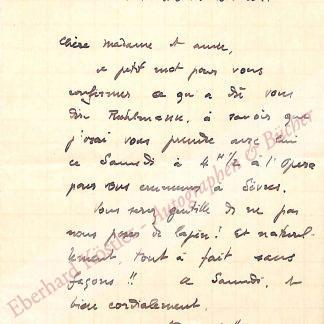 Chère Madame et amie,
ce petit mot pour vous
confirmer ce qu'a dû vous
dire Ruhlmann, à savoir que
j'irai vous prendre avec lui
ce Samedi à 4 H 1/2 à l'Opera
pour vous emmener à Sèvres.
Vous serez gentille de ne pas
nous poser de lapin! Et naturel-
lement, tout à fait sans
façons!! A Samedi, et
bien cordialement.
Eberhard Köstler - Autographen & Bücher